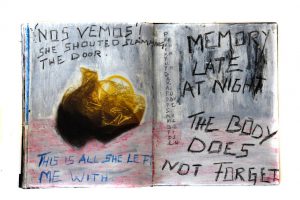 'NOS VEMOS'!
SHE SHOUTED SLAMMING
THE DOOR.
THIS IS ALL SHE LEFT
ME WITH
MEMORY
LATE
AT NIGHT
THE BODY
DOES
NOT FORGET